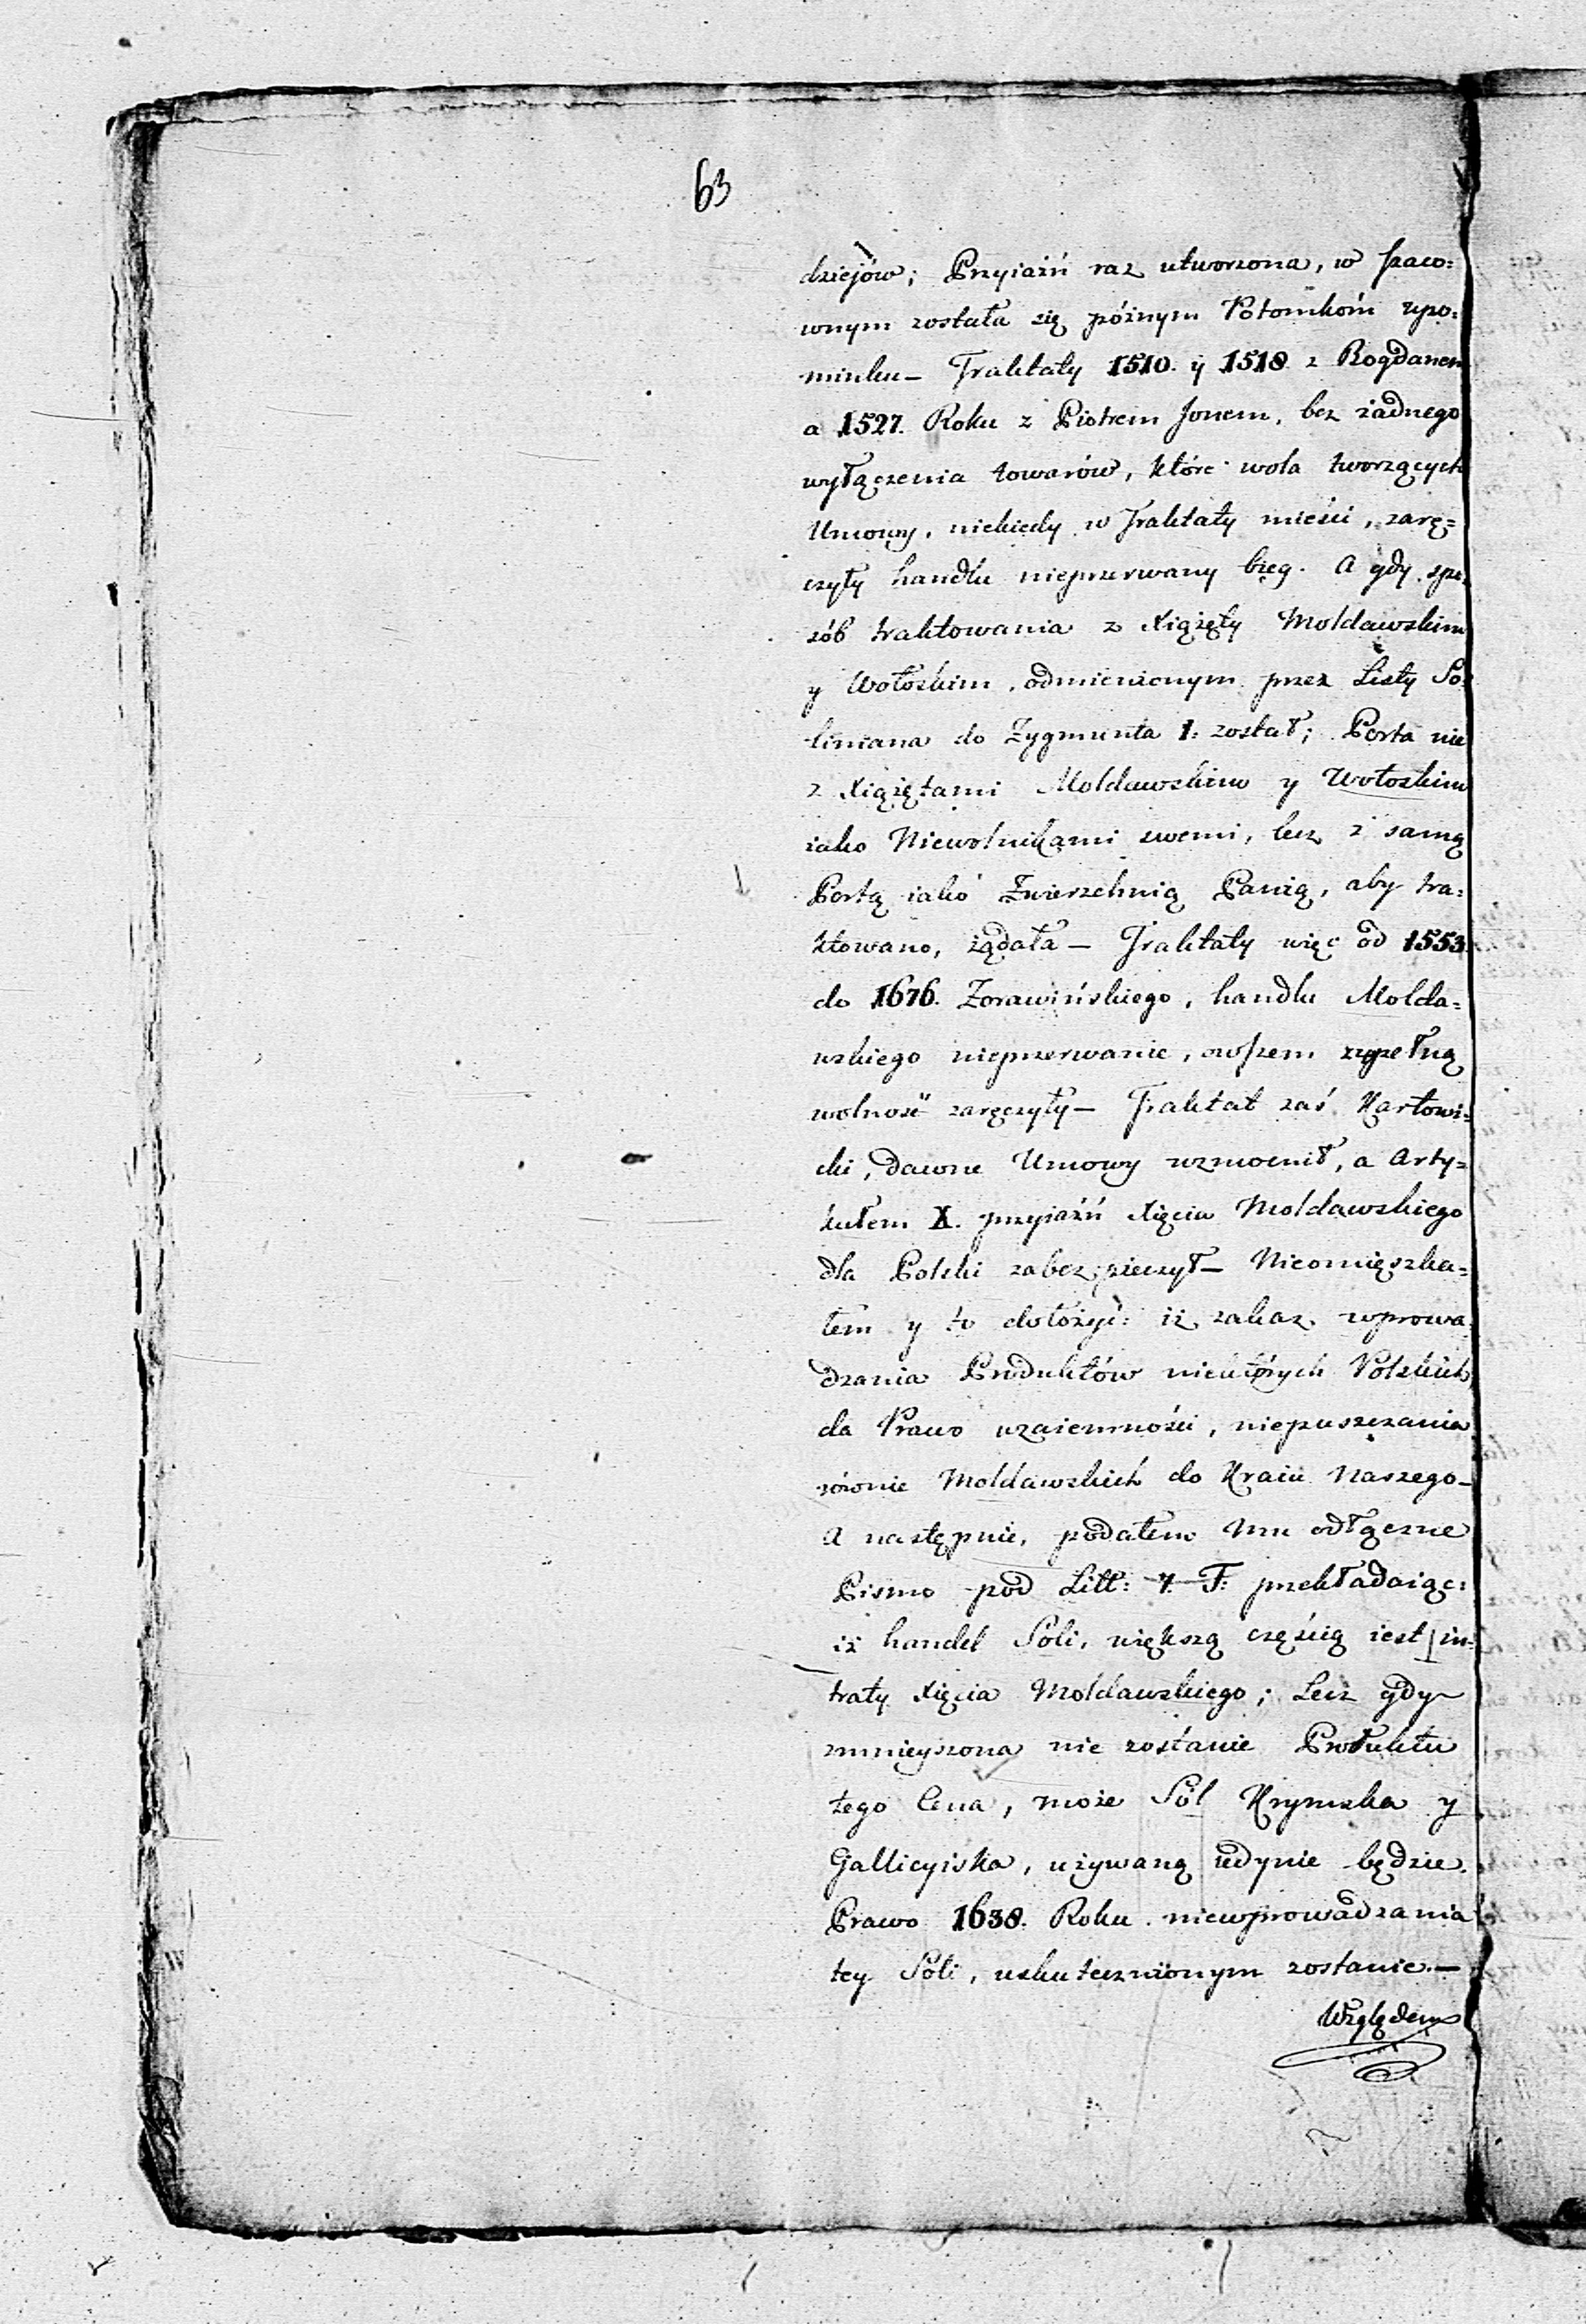 63
dziejów; Przyiaźń raz utworzona, w szaco=
wnym została się późnym Potomkóm upo=
minku – Traktaty 1510. y 1518. z Bogdanem
a 1527. Roku z Piotrem Jonem, bez żadnego
wyłączenia towarów, które wola tworzących
Umowy, niekiedy w Traktaty mieści, zarę=
czyły handlu nieprzerwany bieg. A gdy spo=
sób traktowania z Xiążęty Mołdawskim
y Wołoskim, odmienionym przez Listy So=
limana do Zygmunta I: został; Porta nie
z Xiążętami Mołdawskim y Wołoskim
iako Niewolnikami swemi, lecz z samą
Portą iako Zwierzchnią Panią, aby tra=
ktowano, żądała – Traktaty więc od 1553.
do 1676. Zorawińskiego, handlu Molda=
wskiego nieprzerwanie, owszem zupełną
wolność zaręczyły – Traktat zaś Karłowi=
cki, dawne Umowy wzmocnił, a Arty=
kułem X. przyiaźń Xięcia Moldawskiego
dla Polski zabezpieczył – Nieomięszka=
łem y to dołożyć: iż zakaz wprowa=
dzania Produktów niektórych Polskich,
da Prawo wzaiemności, niepuszczania
równie Moldawskich do Kraiu Naszego –
A następnie, podałem Mu odłączne
Pismo pod Litt: F: przekładaiąc:
iż handel Soli, większą częścią iest in=
traty Xięcia Moldawskiego; Lecz gdy
zmnieyszona nie zostanie Produktu
tego Cena, może Sól Krymska y
Gallicyiska, używaną iedynie będzie.
Prawo 1638. Roku niewprowadzania
tey Soli, uskutecznionym zostanie. –
Względem